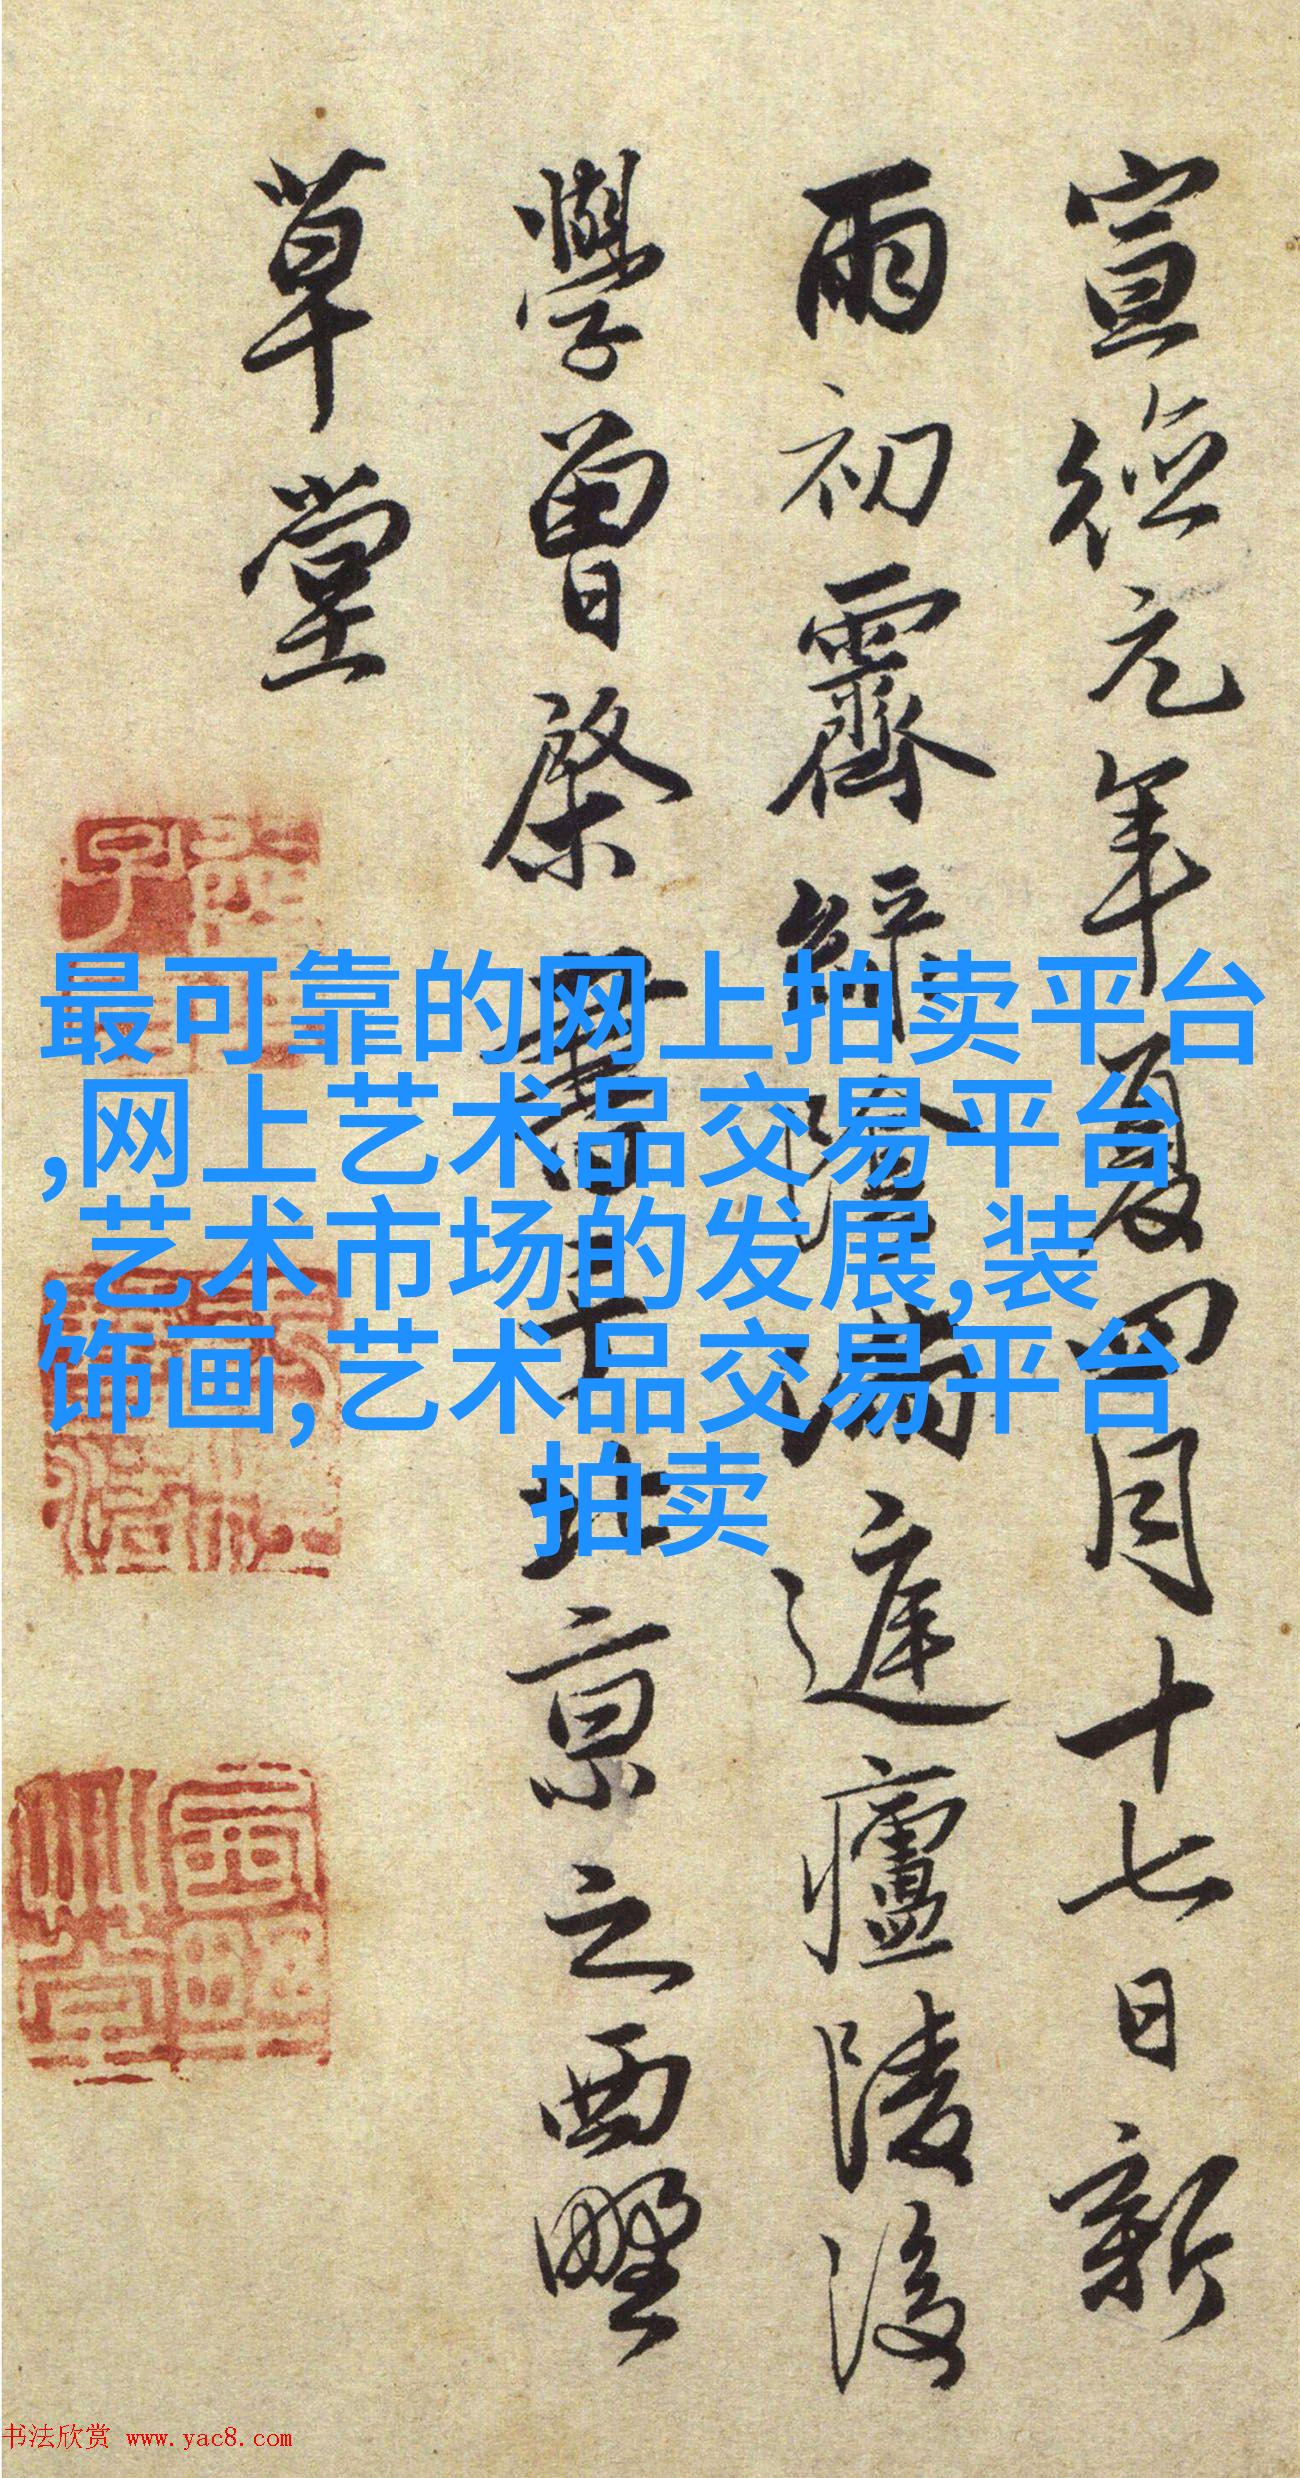 宣德元年夏四月十七日新
雨初霽解陰滿遲廬陵後
學曾棨書于北京之西墅
草堂
最可靠的网上拍卖平台
,网上艺术品交易平台
,艺术市场的发展,装
饰画,艺术品交易平台
拍卖
书法欣赏 www.yac8.com